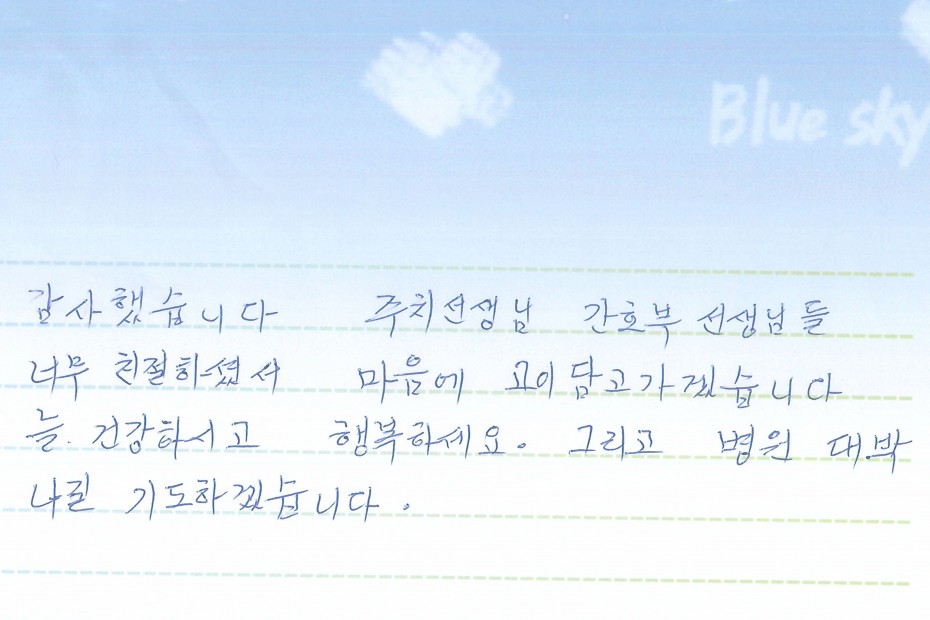 Blue sky
감사했습니다 주치선생님 간호부 선생님들
너무 친절하셨서 마음에 고이담고가겠습니다
늘. 건강하시고 행복하세요. 그리고 병원 대박
나길 기도하겠습니다.